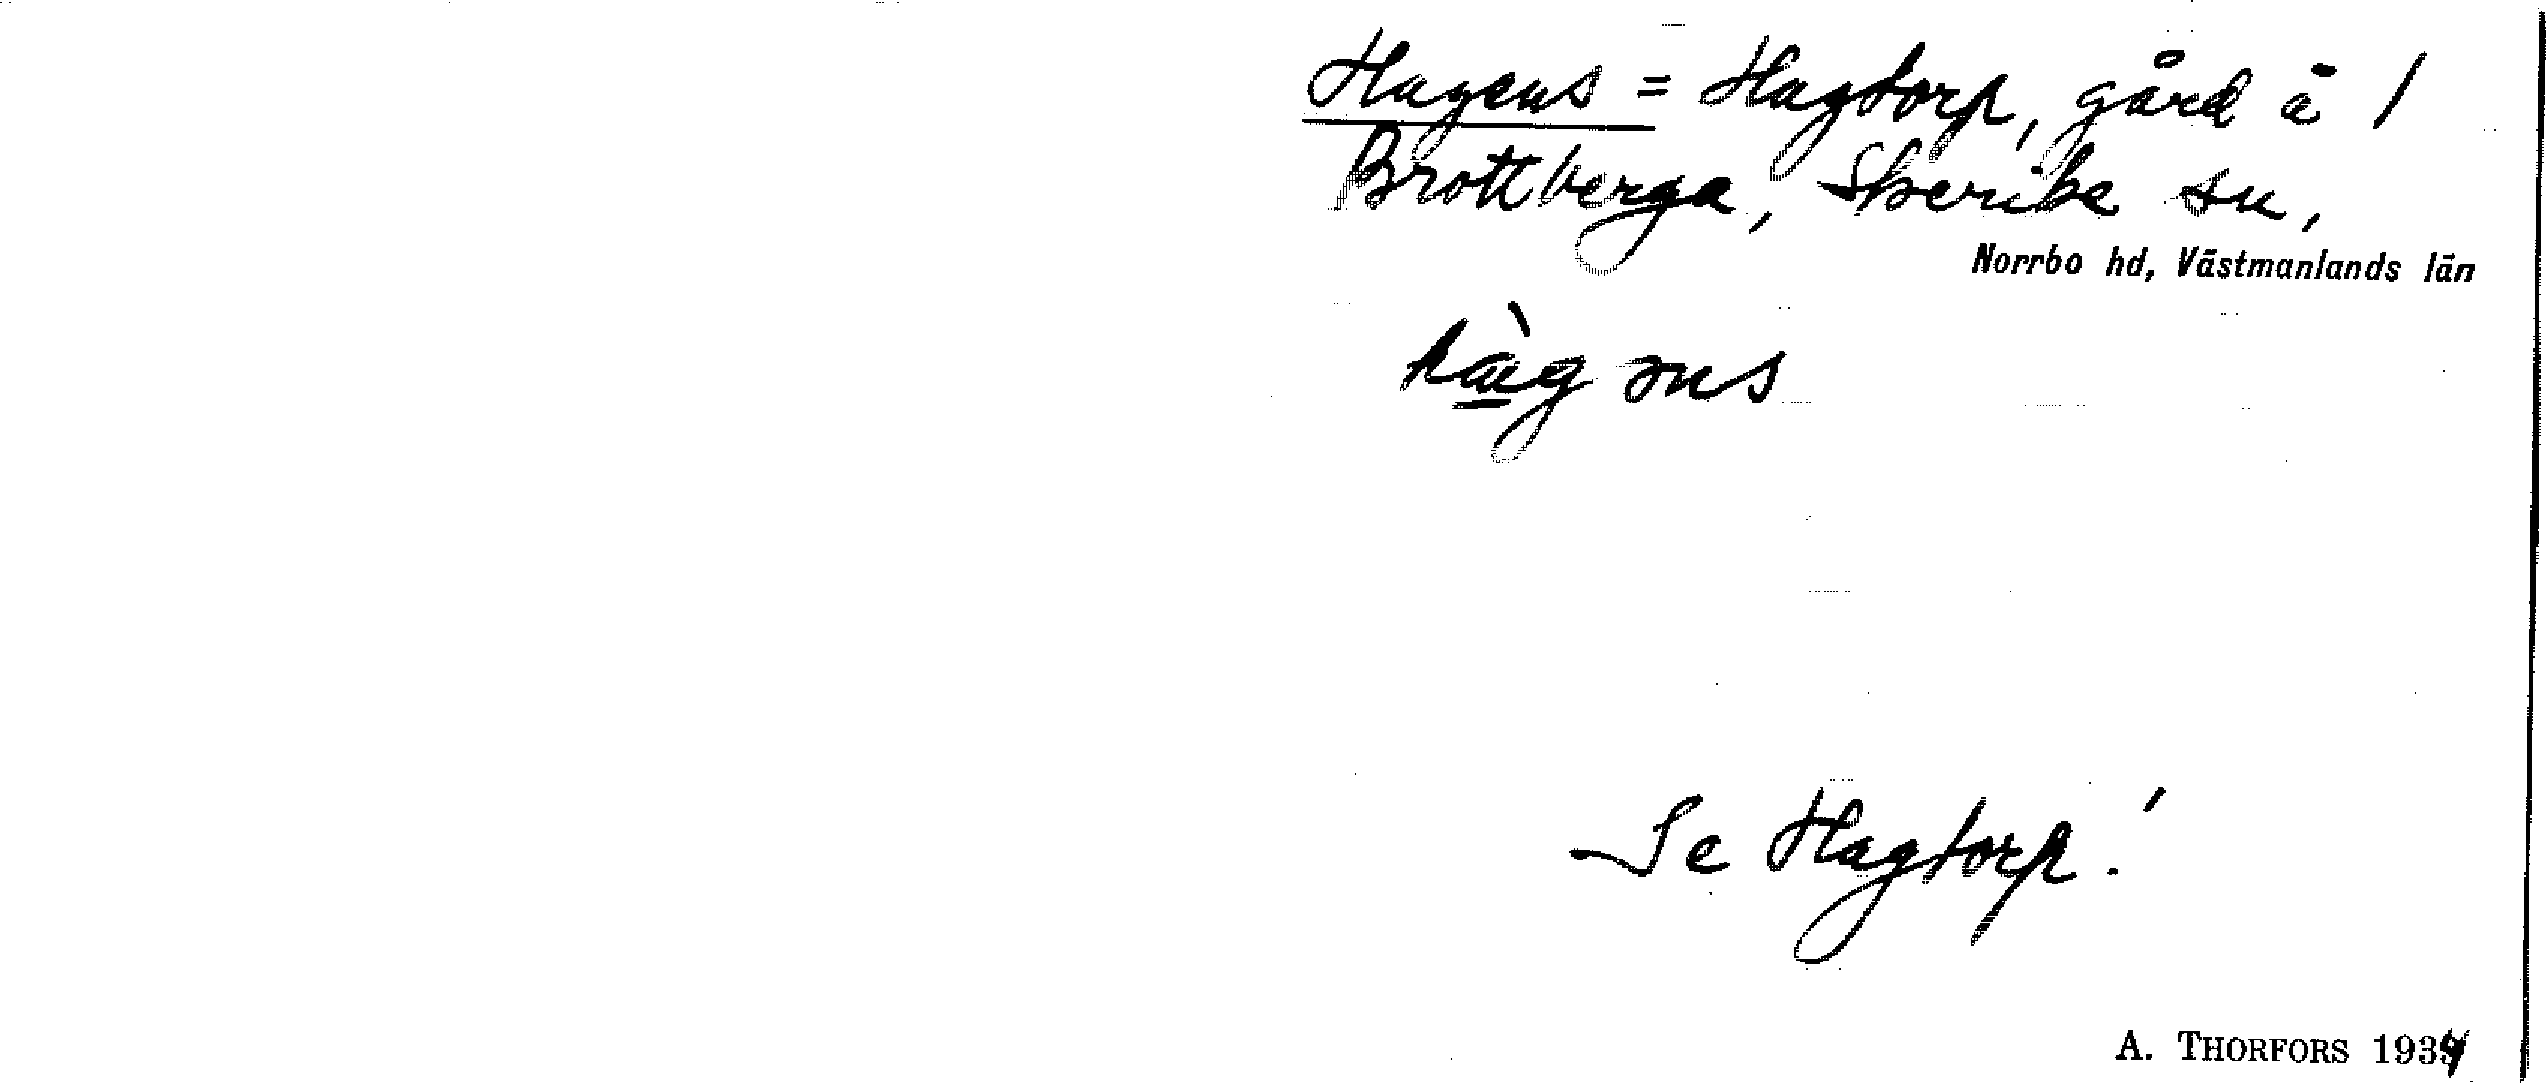 Hagens = Hagtorp, gård å 1
Brottberga, Skerike sn,
Norrbo hd, Västmanlands län
hàgəns
Se Hagtorp!
A. THORFORS 1934